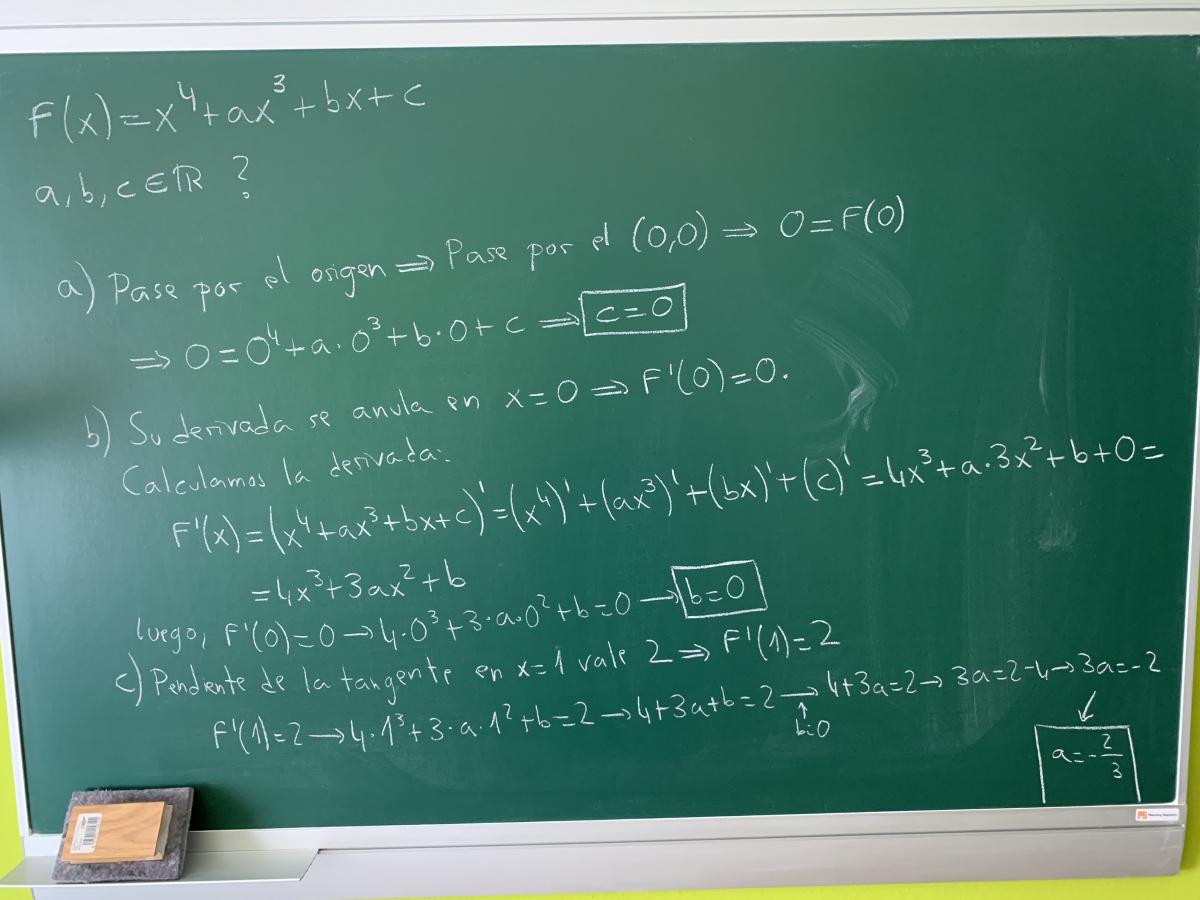 F(x)=x⁴+ax³+bx+c
a,b,c∈ℝ ?
a) Pase por el origen ⇒ Pase por el (0,0) ⇒ 0=F(0)
⇒ 0=0⁴+a·0³+b·0+c ⇒ c=0
b) Su derivada se anula en x=0 ⇒ F'(0)=0.
Calculamos la derivada:
F'(x)=(x⁴+ax³+bx+c)'=(x⁴)'+(ax³)'+(bx)'+(c)'=4x³+a·3x²+b+0=
=4x³+3ax²+b
luego, F'(0)=0→4·0³+3·a·0²+b=0→b=0
c) Pendiente de la tangente en x=1 vale 2 ⇒ F'(1)=2
F'(1)=2→4·1³+3·a·1²+b=2→4+3a+b=2→4+3a=2→3a=2-4→3a=-2
↑ ↙
b=0
a=-2/3